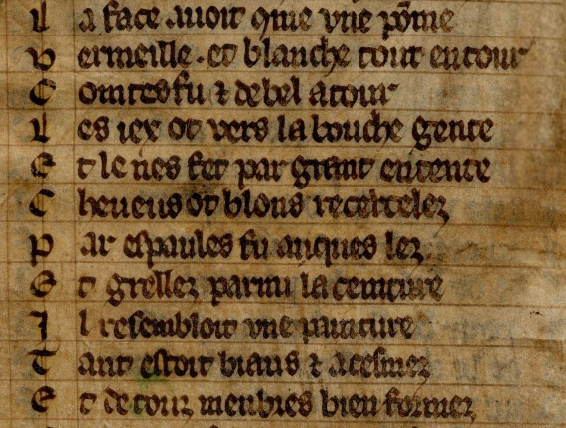 L a face auoit ɔme vne pōme
v ermeille . et blanche tout entour
C ointes fu ⁊ de bel atour
L es iex ot vers la bouche gente
E t le nes fet par grant entente
C heueus ot blons recercelez
P ar espaules fu auques lez
G t grellez parmi la ceinture
I l resembloit vne painture
T ant estoit biaus ⁊ acesmez
E t de touz menbres bien formez